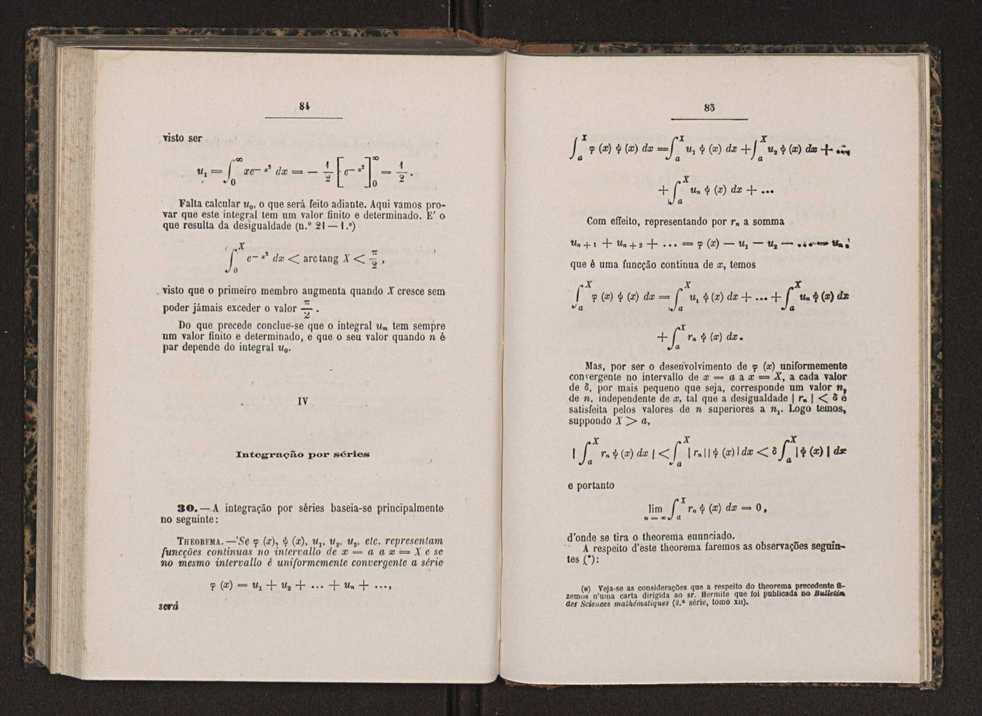 84
visto ser
u₁ = ∫₀^∞ xe^{-x²} dx = — 1/2 [e^{-x²}]₀^∞ = 1/2 .
Falta calcular u₀, o que será feito adiante. Aqui vamos pro-
var que este integral tem um valor finito e determinado. E' o
que resulta da desigualdade (n.º 21 — 1.º)
∫₀^X e^{-x²} dx < arc tang X < π/2 ,
visto que o primeiro membro augmenta quando X cresce sem
poder jámais exceder o valor π/2 .
Do que precede conclue-se que o integral uₙ tem sempre
um valor finito e determinado, e que o seu valor quando n é
par depende do integral u₀.
IV
Integração por séries
30. — A integração por séries baseia-se principalmente
no seguinte:
THEOREMA. — Se φ (x), ψ (x), u₁, u₂, u₃, etc. representam
funcções continuas no intervallo de x = a a x = X e se
no mesmo intervallo é uniformemente convergente a série
φ (x) = u₁ + u₂ + ... + uₙ + ...,
será
85
∫ₐ^X φ (x) ψ (x) dx = ∫ₐ^X u₁ ψ (x) dx + ∫ₐ^X u₂ ψ (x) dx + ...
+ ∫ₐ^X uₙ ψ (x) dx + ...
Com effeito, representando por rₙ a somma
uₙ₊₁ + uₙ₊₂ + ... = φ (x) — u₁ — u₂ — ... — uₙ,
que é uma funcção continua de x, temos
∫ₐ^X φ (x) ψ (x) dx = ∫ₐ^X u₁ ψ (x) dx + ... + ∫ₐ^X uₙ ψ (x) dx
+ ∫ₐ^X rₙ ψ (x) dx.
Mas, por ser o desenvolvimento de φ (x) uniformemente
convergente no intervallo de x = a a x = X, a cada valor
de δ, por mais pequeno que seja, corresponde um valor n₁
de n, independente de x, tal que a desigualdade | rₙ | < δ é
satisfeita pelos valores de n superiores a n₁. Logo temos,
suppondo X > a,
| ∫ₐ^X rₙ ψ (x) dx | < ∫ₐ^X | rₙ | | ψ (x) | dx < δ ∫ₐ^X | ψ (x) | dx
e portanto
lim_{n = ∞} ∫ₐ^X rₙ ψ (x) dx = 0,
d'onde se tira o theorema enunciado.
A respeito d'este theorema faremos as observações seguin-
tes (*):
(*) Veja-se as considerações que a respeito do theorema precedente fi-
zemos n'uma carta dirigida ao sr. Hermite que foi publicada no Bulletin
des Sciences mathématiques (2.ª série, tomo XII).